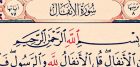 سُورَةُ الأَنفَالِ
بِسْمِ اللَّهِ الرَّحْمَٰنِ الرَّحِيمِ
الأَنفَالِ قُلِ الأَنفَالُ لِلَّهِ وَالرَّسُولِ